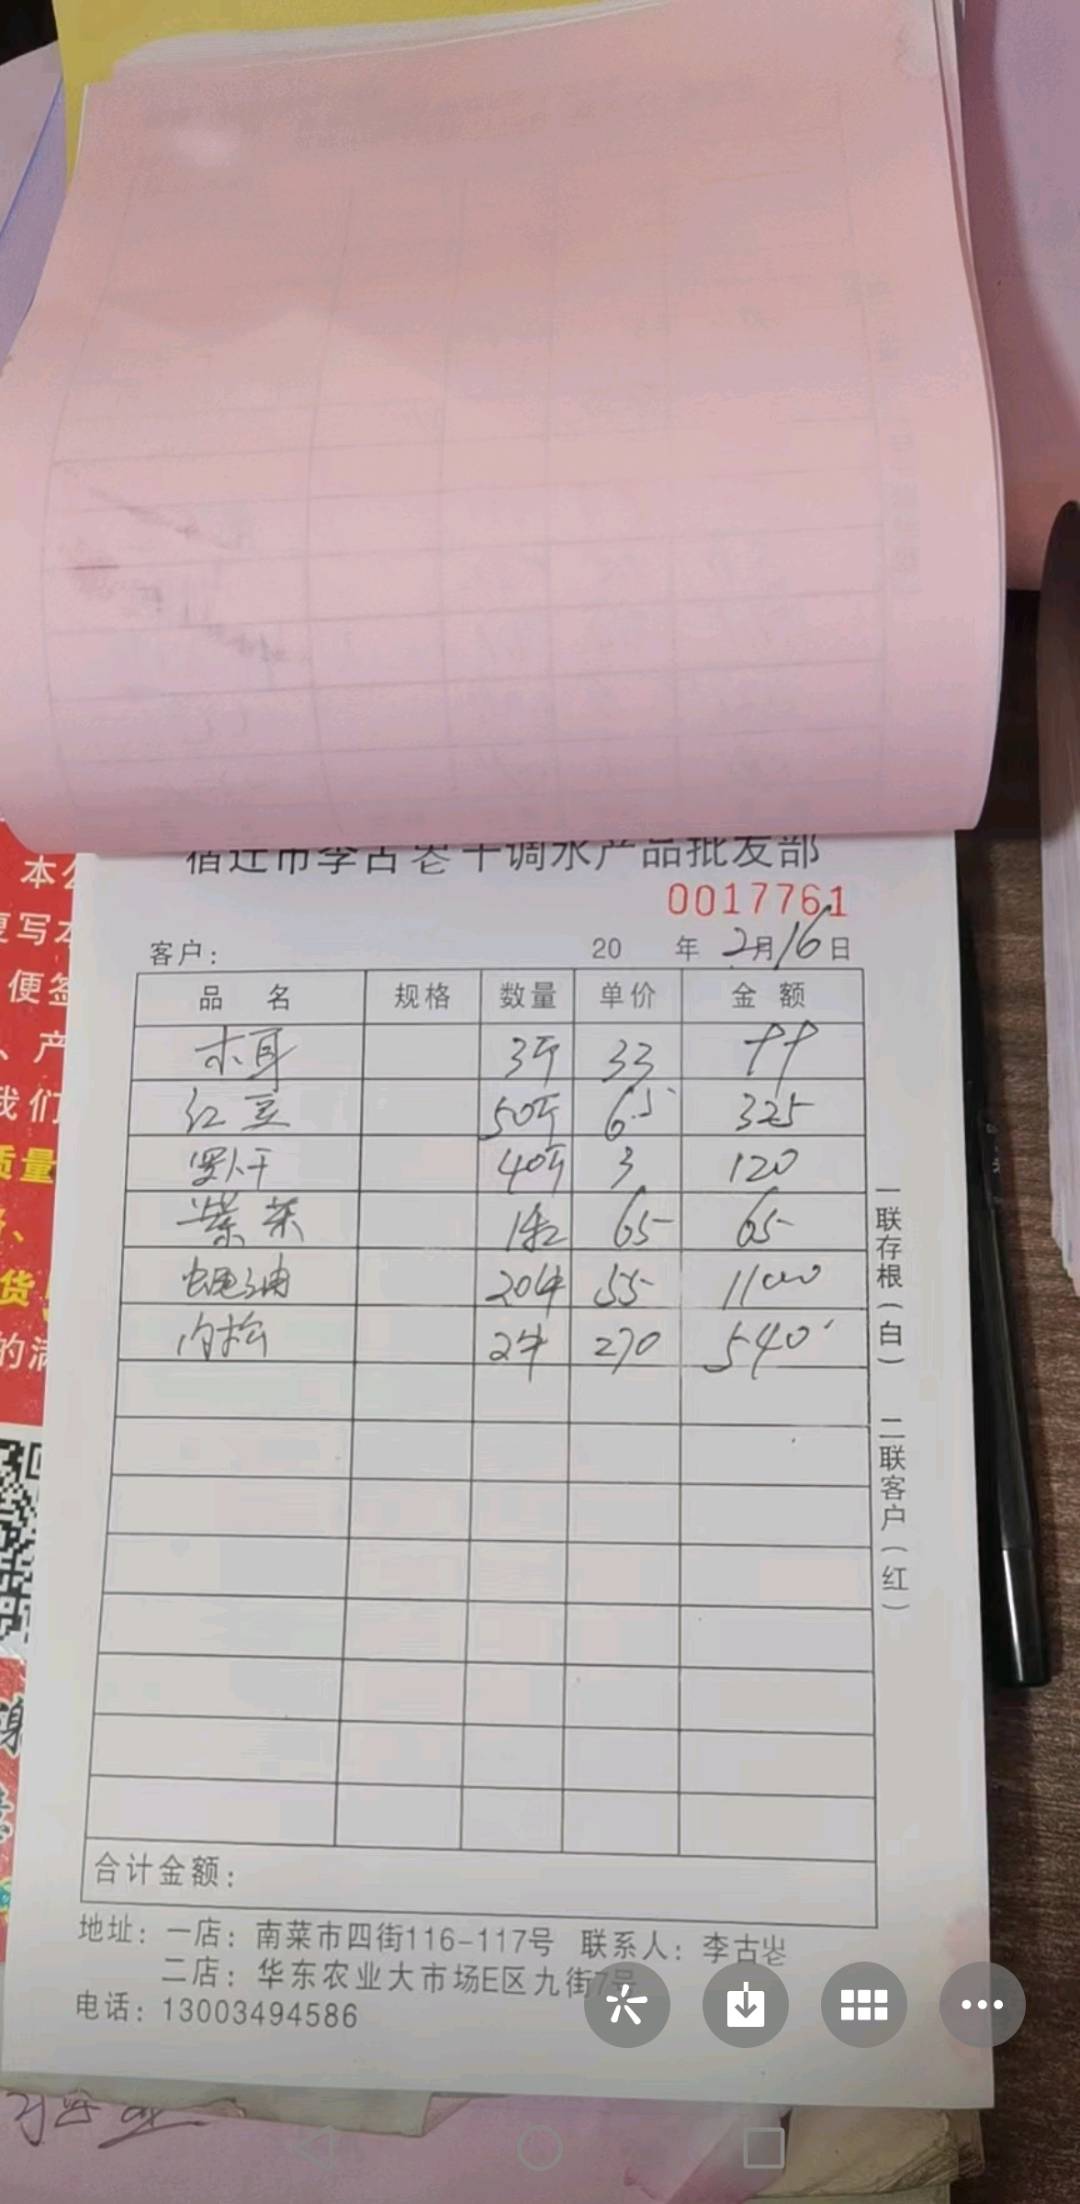 宿迁市李古岜干调水产品批发部
0017761
客户： 20 年 2月16日
品 名 规格 数量 单价 金 额
木耳 3斤 33 99
红豆 50斤 6.5 325
罗卜干 40斤 3 120
紫菜 1 65 65
蚝油 20件 55 1100
肉松 2件 270 540
合计金额：
地址：一店：南菜市四街116-117号 联系人：李古岜
二店：华东农业大市场E区九街7号
电话：13003494586
一联存根（白） 二联客户（红）
本公
复写本
便签
、产
我们
质量
货
的满